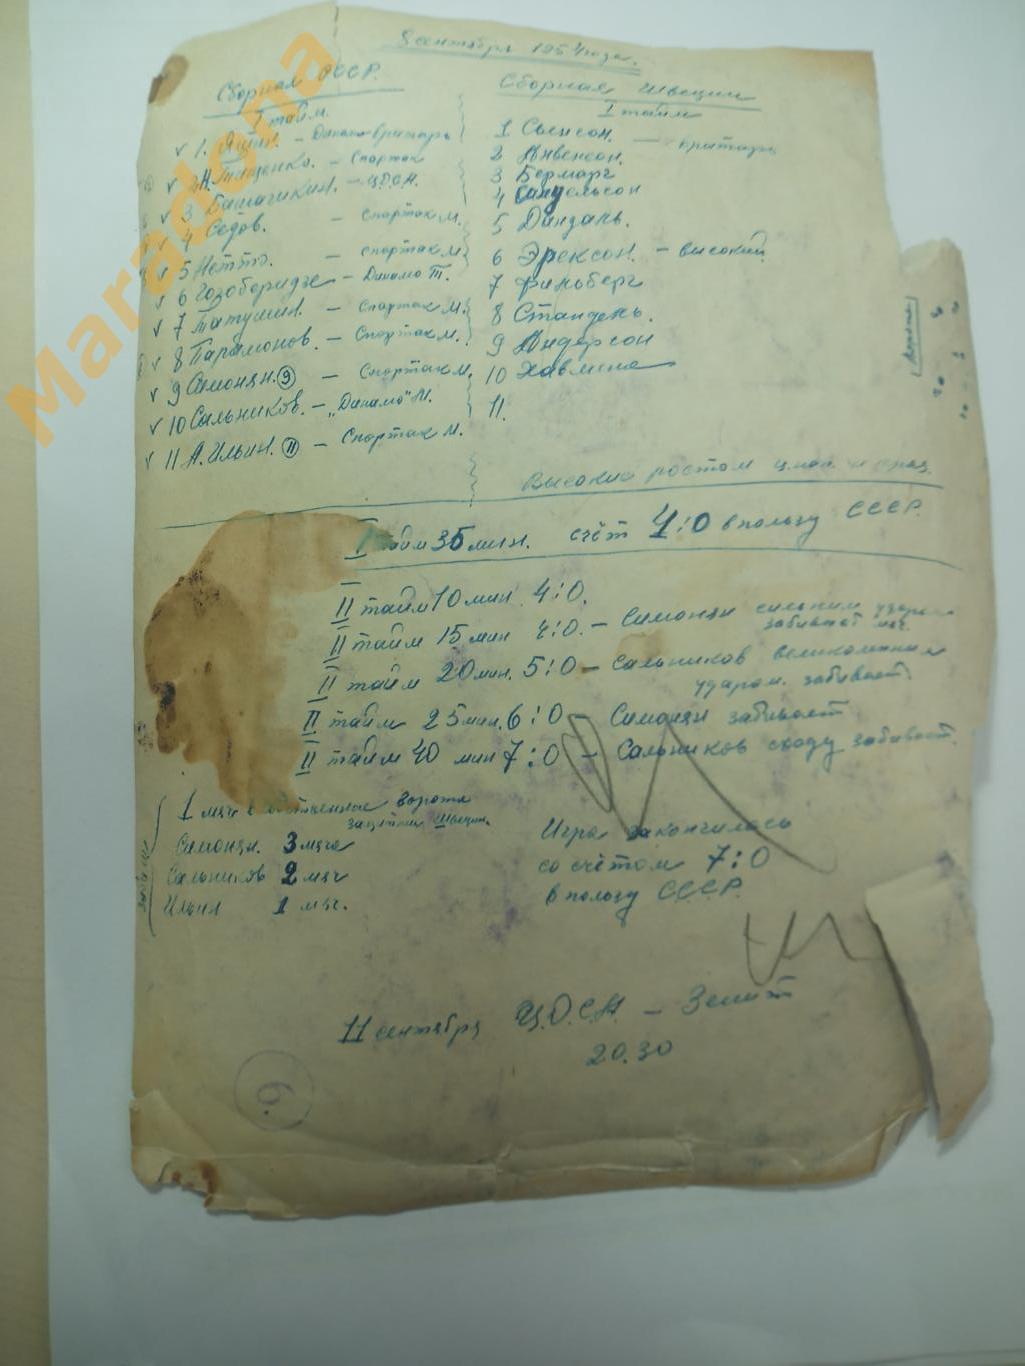 8 сентября 1954 года.
Сборная СССР.
I тайм.
1. Яшин. - Динамо вратарь
2 Н. Тищенко. - Спартак
3 Башашкин. - Ц.Д.С.А.
4 Седов. - Спартак М.
5 Нетто. - Спартак М.
6 Гогоберидзе - Динамо Т.
7 Татушин. - Спартак М.
8 Парамонов. - Спартак М.
9 Симонян. 9 - Спартак М.
10 Сальников. - "Динамо" М.
11 А. Ильин. 11 - Спартак М.
Сборная Швеции
I тайм
1 Свенсон. - вратарь
2 Анвенсон.
3 Бермарг
4 Самуельсон
5 Дандаль.
6 Эрексон. - высокий
7 Финьберг
8 Стандень.
9 Андерсон
10
11.
Высокие ростом
I тайм 35 мин. счёт 4:0 в пользу СССР.
II тайм 10 мин 4:0.
II тайм 15 мин 4:0. - Симонян сильным ударом забивает мяч.
II тайм 20 мин. 5:0 - Сальников великолепным ударом. забивает.
II тайм 25 мин. 6:0 - Симонян забивает
II тайм 40 мин 7:0 - Сальников сходу забивает.
1 мяч в собственные ворота
защитник Швеции.
Симонян. 3 мяча
Сальников 2 мяч
Ильин 1 мяч.
Игра закончилась
со счётом 7:0
в пользу СССР.
11 сентября Ц.Д.С.А. - Зенит
20.30
6.
Maradona